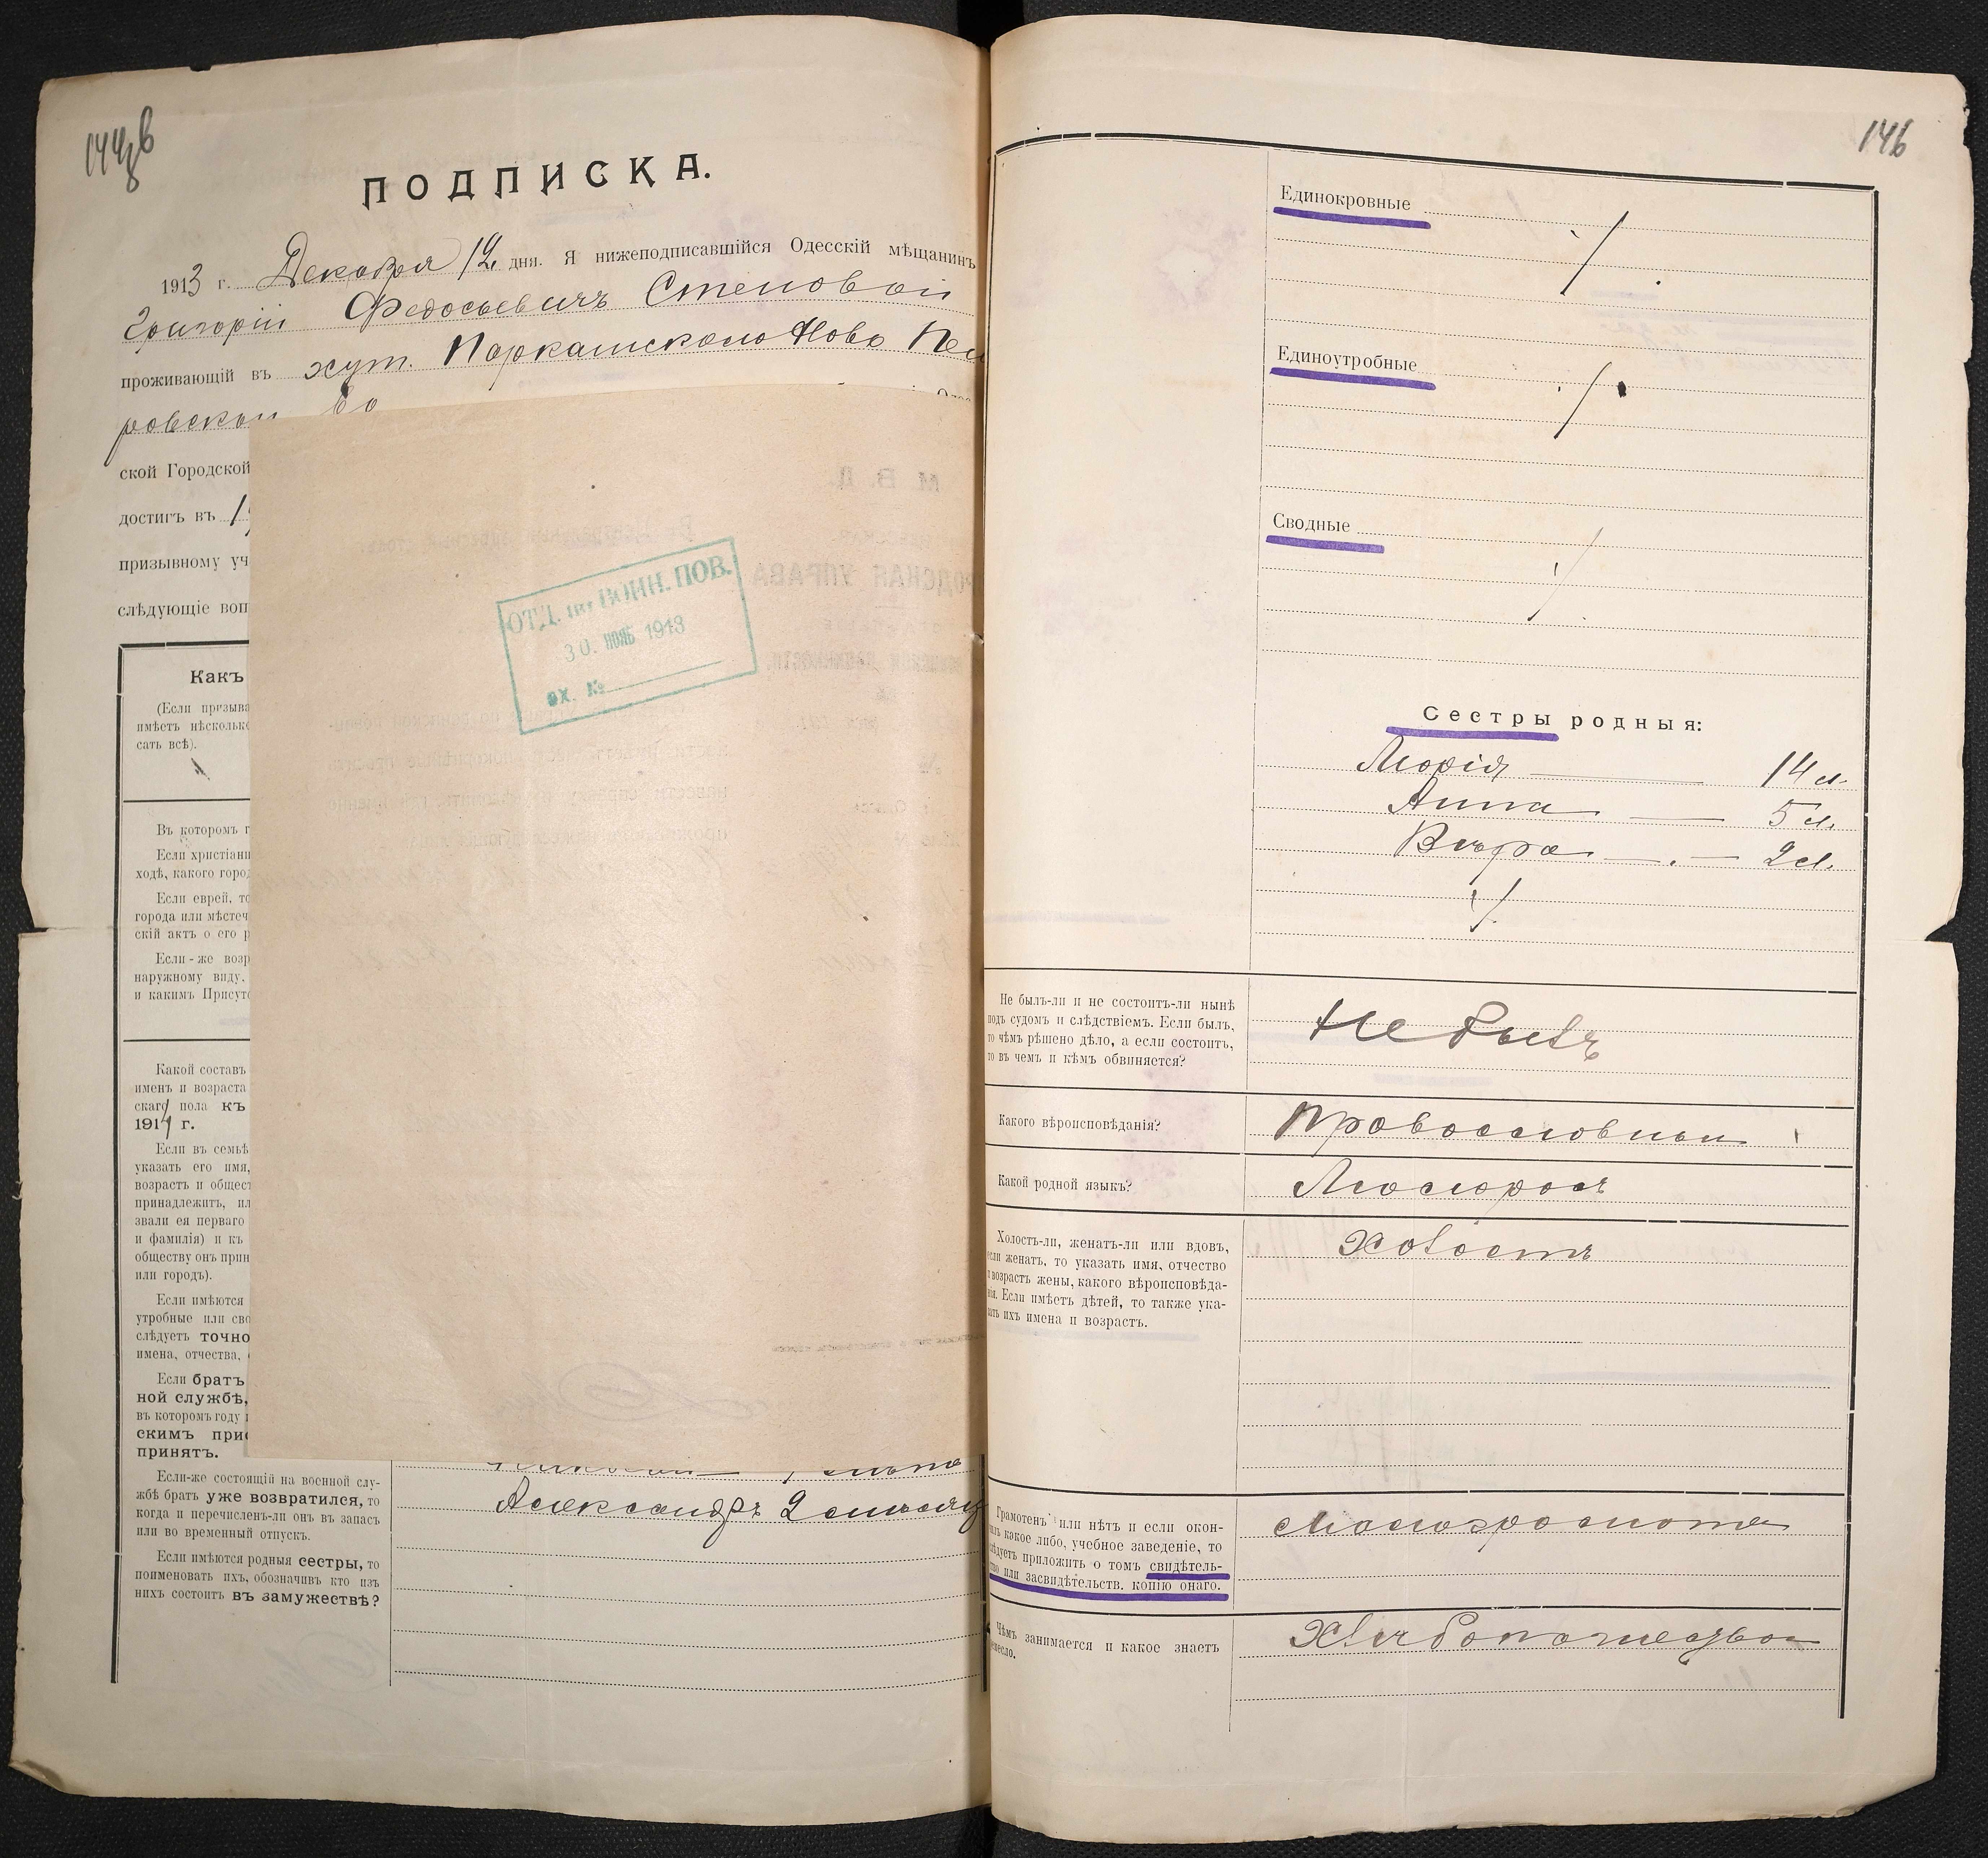 144в
ПОДПИСКА.
1913 г. Декабря 12 дня. Я нижеподписавшійся Одесскій мѣщанинъ
Григорій Федосьевичъ Степовой
проживающій въ хут. Паркашскаго Ново Пет
ровской во
ской Городской
достигъ въ 19
призывному уч
слѣдующіе воп
Какъ
(Если призыва
имѣетъ нѣсколько
сать всѣ).
Въ которомъ г
Если христіани
ходѣ, какого горо
Если еврей, то
города или мѣстеч
скій актъ о его р
Если-же возр
наружному виду,
и какимъ Присут
Какой составъ
именъ и возраста
скаго пола къ
1914 г.
Если въ семьѣ
указать его имя,
возрастъ и общест
принадлежитъ, ил
звали ея перваго
и фамилія) и къ
обществу онъ прин
или городъ).
Если имѣются
утробные или сво
слѣдуетъ точно
имена, отчества,
Если братъ
ной службѣ,
въ которомъ году
скимъ прис
принятъ.
Если-же состоящій на военной слу-
жбѣ братъ уже возвратился, то
когда и перечисленъ-ли онъ въ запасъ
или во временный отпускъ.
Если имѣются родныя сестры, то
поименовать ихъ, обозначивъ кто изъ
нихъ состоитъ въ замужествѣ?
Александръ 2
ОТД. ПО ВОИН. ПОВ.
30. НОЯБ 1913
ВХ. №
146
Единокровные
Единоутробные
Сводные
Сестры родныя:
Марія 14 л.
Анна 5 л.
Вѣра 2 л.
Не былъ-ли и не состоитъ-ли нынѣ
подъ судомъ и слѣдствіемъ. Если былъ,
то чѣмъ рѣшено дѣло, а если состоитъ,
то въ чемъ и кѣмъ обвиняется?
Не былъ
Какого вѣроисповѣданія?
Православный
Какой родной языкъ?
Малорос
Холостъ-ли, женатъ-ли или вдовъ,
если женатъ, то указать имя, отчество
и возрастъ жены, какого вѣроисповѣда-
нія. Если имѣетъ дѣтей, то также ука-
зать ихъ имена и возрастъ.
Холостъ
Грамотенъ или нѣтъ и если окон-
чилъ какое либо, учебное заведеніе, то
слѣдуетъ приложить о томъ свидѣтель-
ство или засвидѣтельств. копію онаго.
Малограмотн
Чѣмъ занимается и какое знаетъ
ремесло.
Хлѣбопашеством